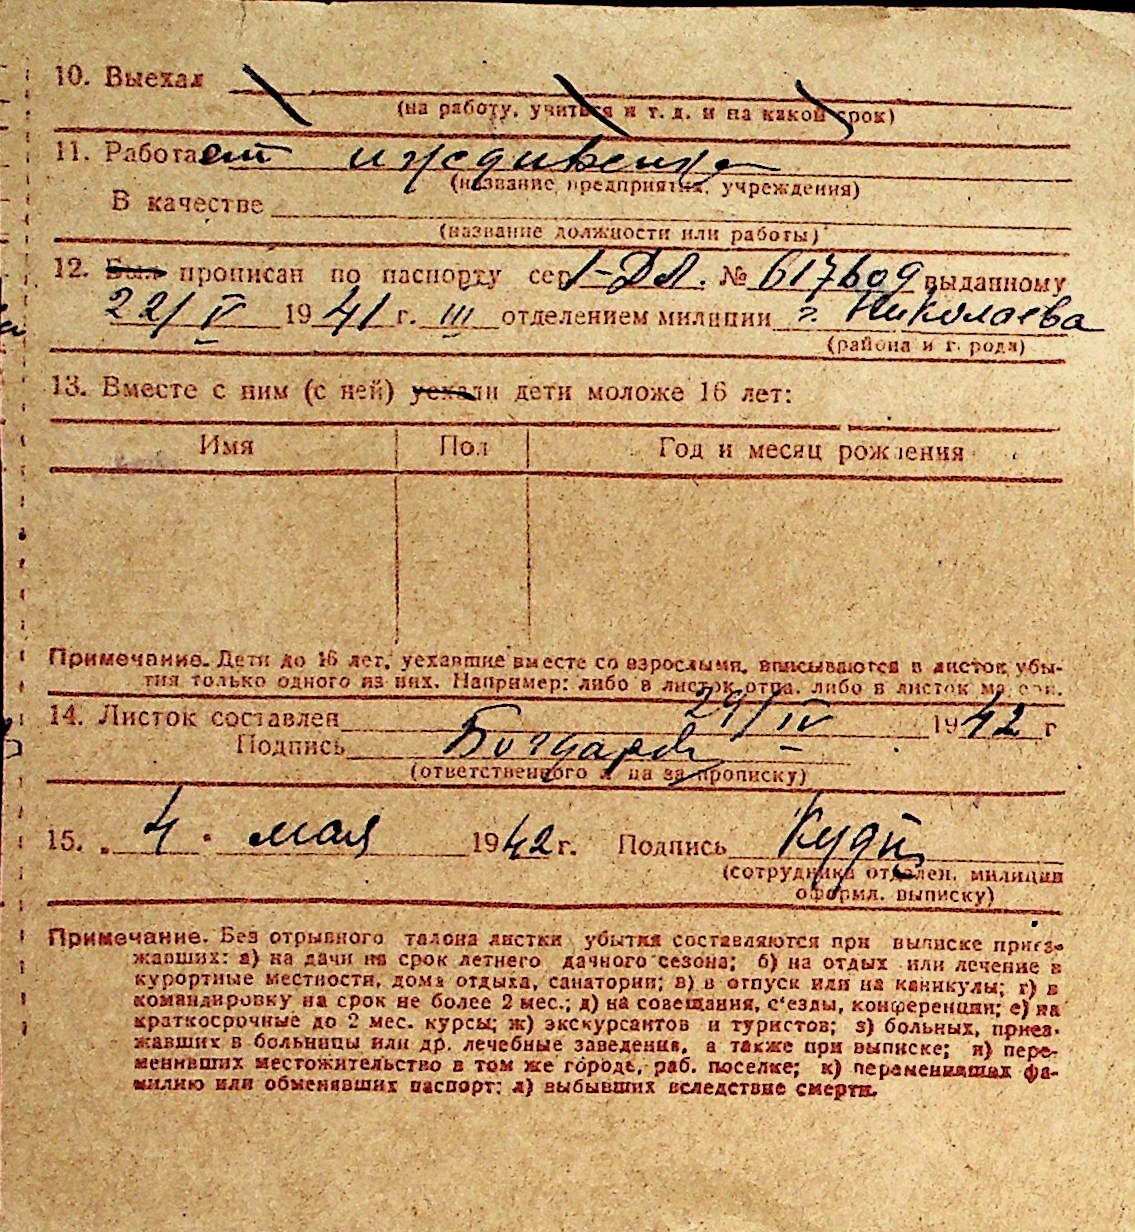 10. Выехал
(на работу, учиться и т. д. и на какой срок)
11. Работает иждивенка
(название предприятия, учреждения)
В качестве
(название должности или работы)
12. Был прописан по паспорту сер 1-ДЛ. № 617609 выданному
22/V 1941 г. III отделением милиции г. Николаева
(района и города)
13. Вместе с ним (с ней) уехали дети моложе 16 лет:
Имя Пол Год и месяц рождения
Примечание. Дети до 16 лет, уехавшие вместе со взрослыми, вписываются в листок убы-
тия только одного из них. Например: либо в листок отца, либо в листок матери.
14. Листок составлен 29/IV 1942 г
Подпись
(ответственного лица за прописку)
15. „ 4 " мая 1942 г. Подпись
(сотрудника отделен. милиции
оформл. выписку)
Примечание. Без отрывного талона листки убытия составляются при выписке приез-
жавших: а) на дачи на срок летнего дачного сезона; б) на отдых или лечение в
курортные местности, дома отдыха, санатории; в) в отпуск или на каникулы; г) в
командировку на срок не более 2 мес.; д) на совещания, с'езды, конференции; е) на
краткосрочные до 2 мес. курсы; ж) экскурсантов и туристов; з) больных, приез-
жавших в больницы или др. лечебные заведения, а также при выписке; и) пере-
менивших местожительство в том же городе, раб. поселке; к) переменивших фа-
милию или обменявших паспорт; л) выбывших вследствие смерти.